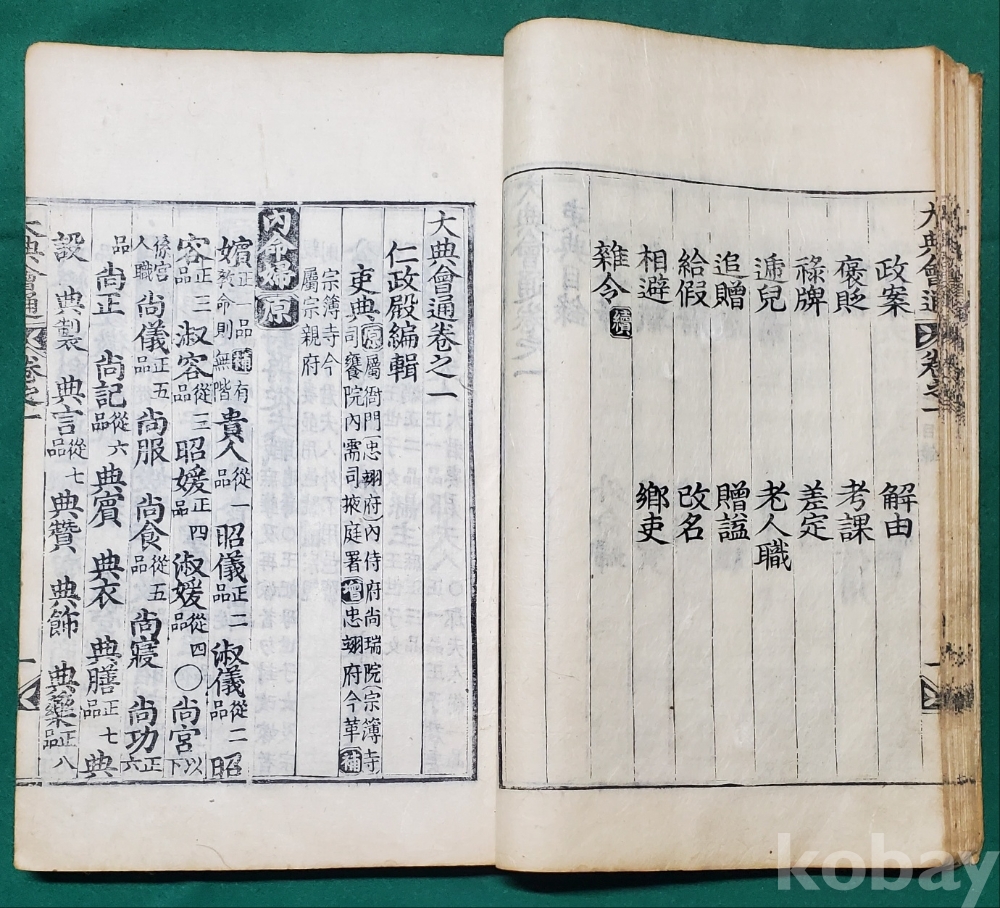 大典會通 卷之一 目錄
政案 解由
褒貶 考課
祿牌 差定
遞兒 老人職
追贈 贈諡
給假 改名
相避 鄕吏
雜令 續
大典會通卷之一
仁政殿編輯
吏典 原 屬衙門(忠翊府)內侍府尙瑞院宗簿寺
司饔院內需司掖庭署 增 忠翊府今革 補
宗簿寺今
屬宗親府
內命婦 原
嬪 正一品 補 有敎命則無階 貴人 從一品 昭儀 正二品 淑儀 從二品 昭
容 正三品 淑容 從三品 昭媛 正四品 淑媛 從四品 ○尙宮 以下
係宮人職 尙儀 正五品 尙服 尙食 從五品 尙寢 尙功 正六
品 尙正 尙記 從六品 典賓 典衣 典膳 正七品 典
設 典製 典言 從七品 典贊 典飾 典藥 正八品
大典會通 卷之一 一
kobay